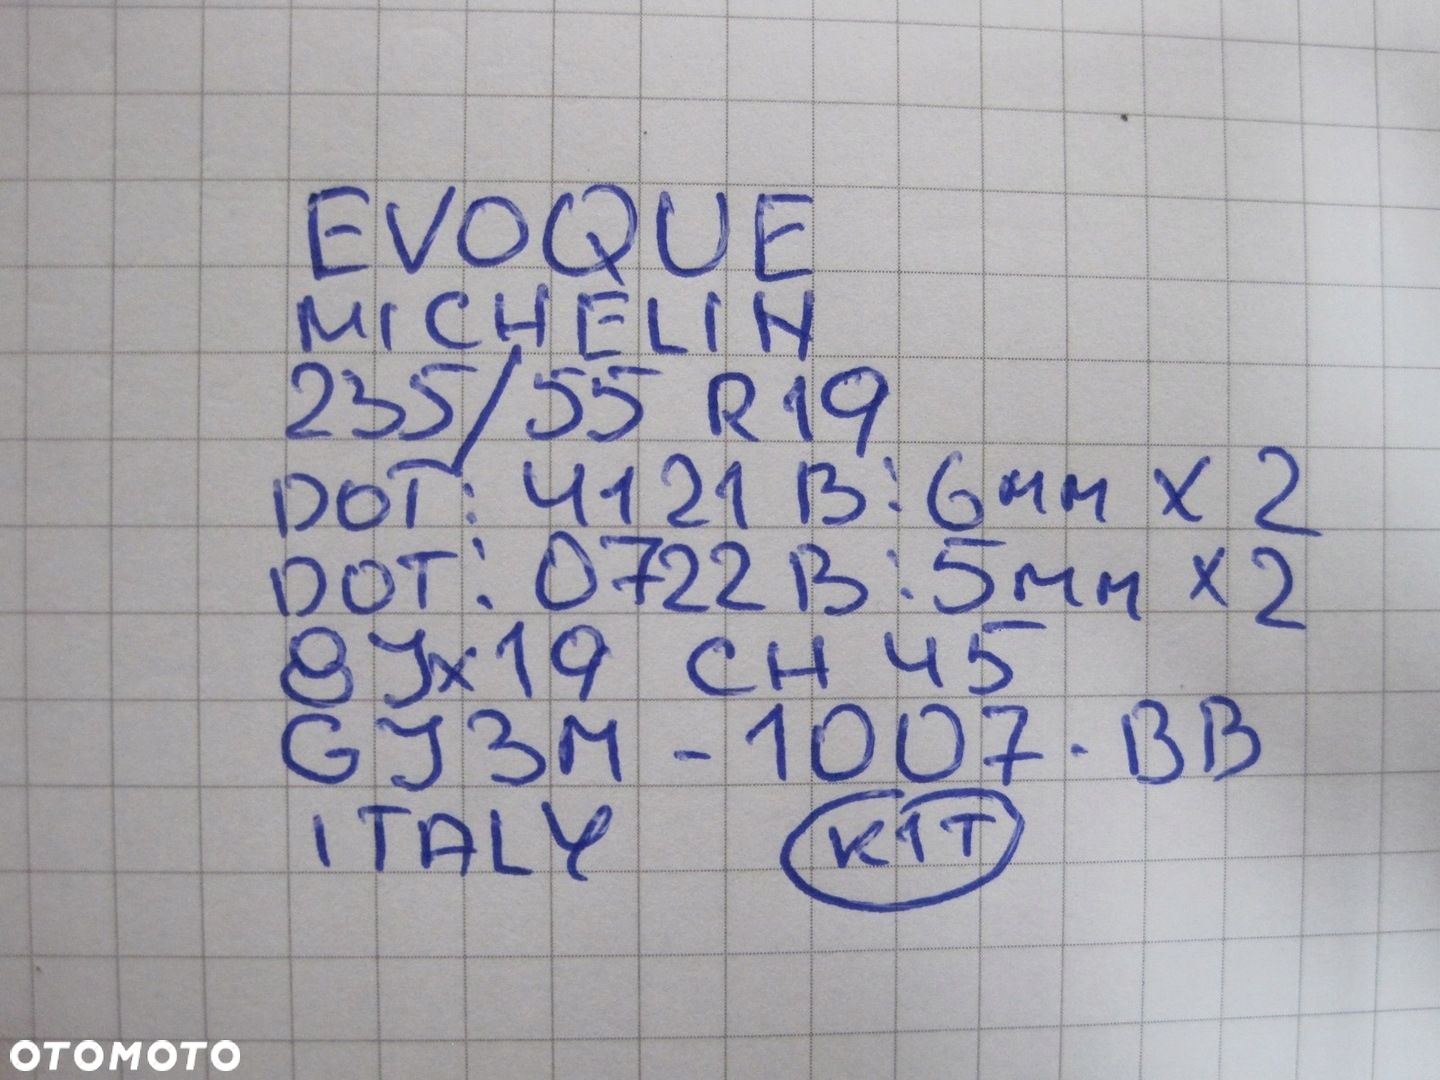 EVOQUE
MICHELIN
235/55 R19
DOT: 4121 B: 6mm x 2
DOT: 0722 B: 5mm x 2
8Jx19 CH 45
GJ3M - 1007 - BB
ITALY KIT
OTOMOTO